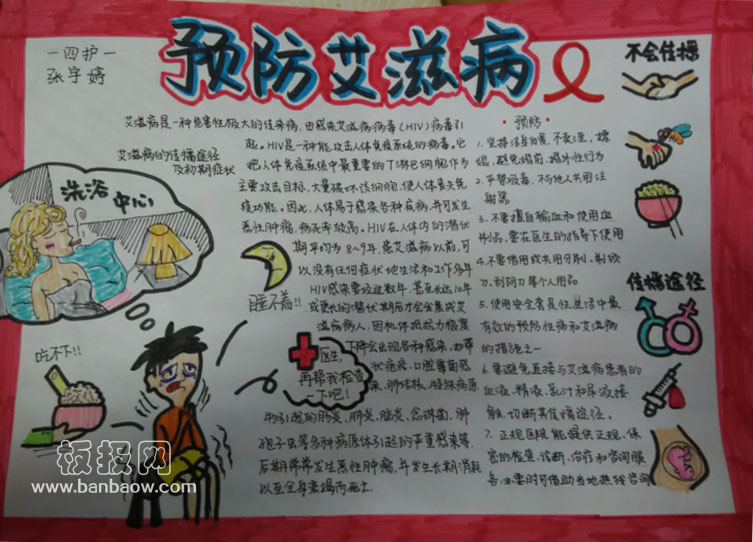 一四护一
张宇婷
预防艾滋病
艾滋病的传播途径
及初期症状
洗浴
中心
睡不着!!
吃不下!!
医生
再帮我检查
一下吧!
艾滋病是一种危害性极大的传染病,由感染艾滋病病毒(HIV)病毒引
起。HIV是一种能攻击人体免疫系统的病毒。它
把人体免疫系统中最重要的T淋巴细胞作为
主要攻击目标,大量破坏该细胞,使人体丧失免
疫功能。因此,人体易于感染各种疾病,并可发生
恶性肿瘤,病死率较高。HIV在人体内的潜伏
期平均为8~9年,患艾滋病以前,可
以没有任何症状地生活和工作多年
HIV感染要经过数年、甚至长达10年
或更长的潜伏期后才会发展成艾
滋病病人,因机体抵抗力极度
下降会出现多种感染,如带
状疱疹、口腔霉菌感
染、肺结核,特殊病原
物引起的肠炎、肺炎、脑炎、念珠菌、肺
孢子虫等多种病原体引起的严重感染等,
后期常常发生恶性肿瘤,并发生长期消耗
以至全身衰竭而死亡
•预防•
1.坚持洁身自爱,不
娼,避免婚前、婚外性行为
2.严禁吸毒,不与他人共用注
射器
3.不要擅自输血和使用血
制品,要在医生的指导下使用
4.不要借用或共用牙刷、剃须
刀、刮脸刀等个人用品
5.使用安全套是性生活中最
有效的预防性病和艾滋病
的措施之一
6.要避免直接与艾滋病患者的
血液、精液、乳汁和尿液接
触,切断其传播途径。
7.正规医院能提供正规、保
密的检查、诊断、治疗和咨询服
务,必要时可借助当地热线咨询
不会传播
传播途径
板报网
www.banbaow.com